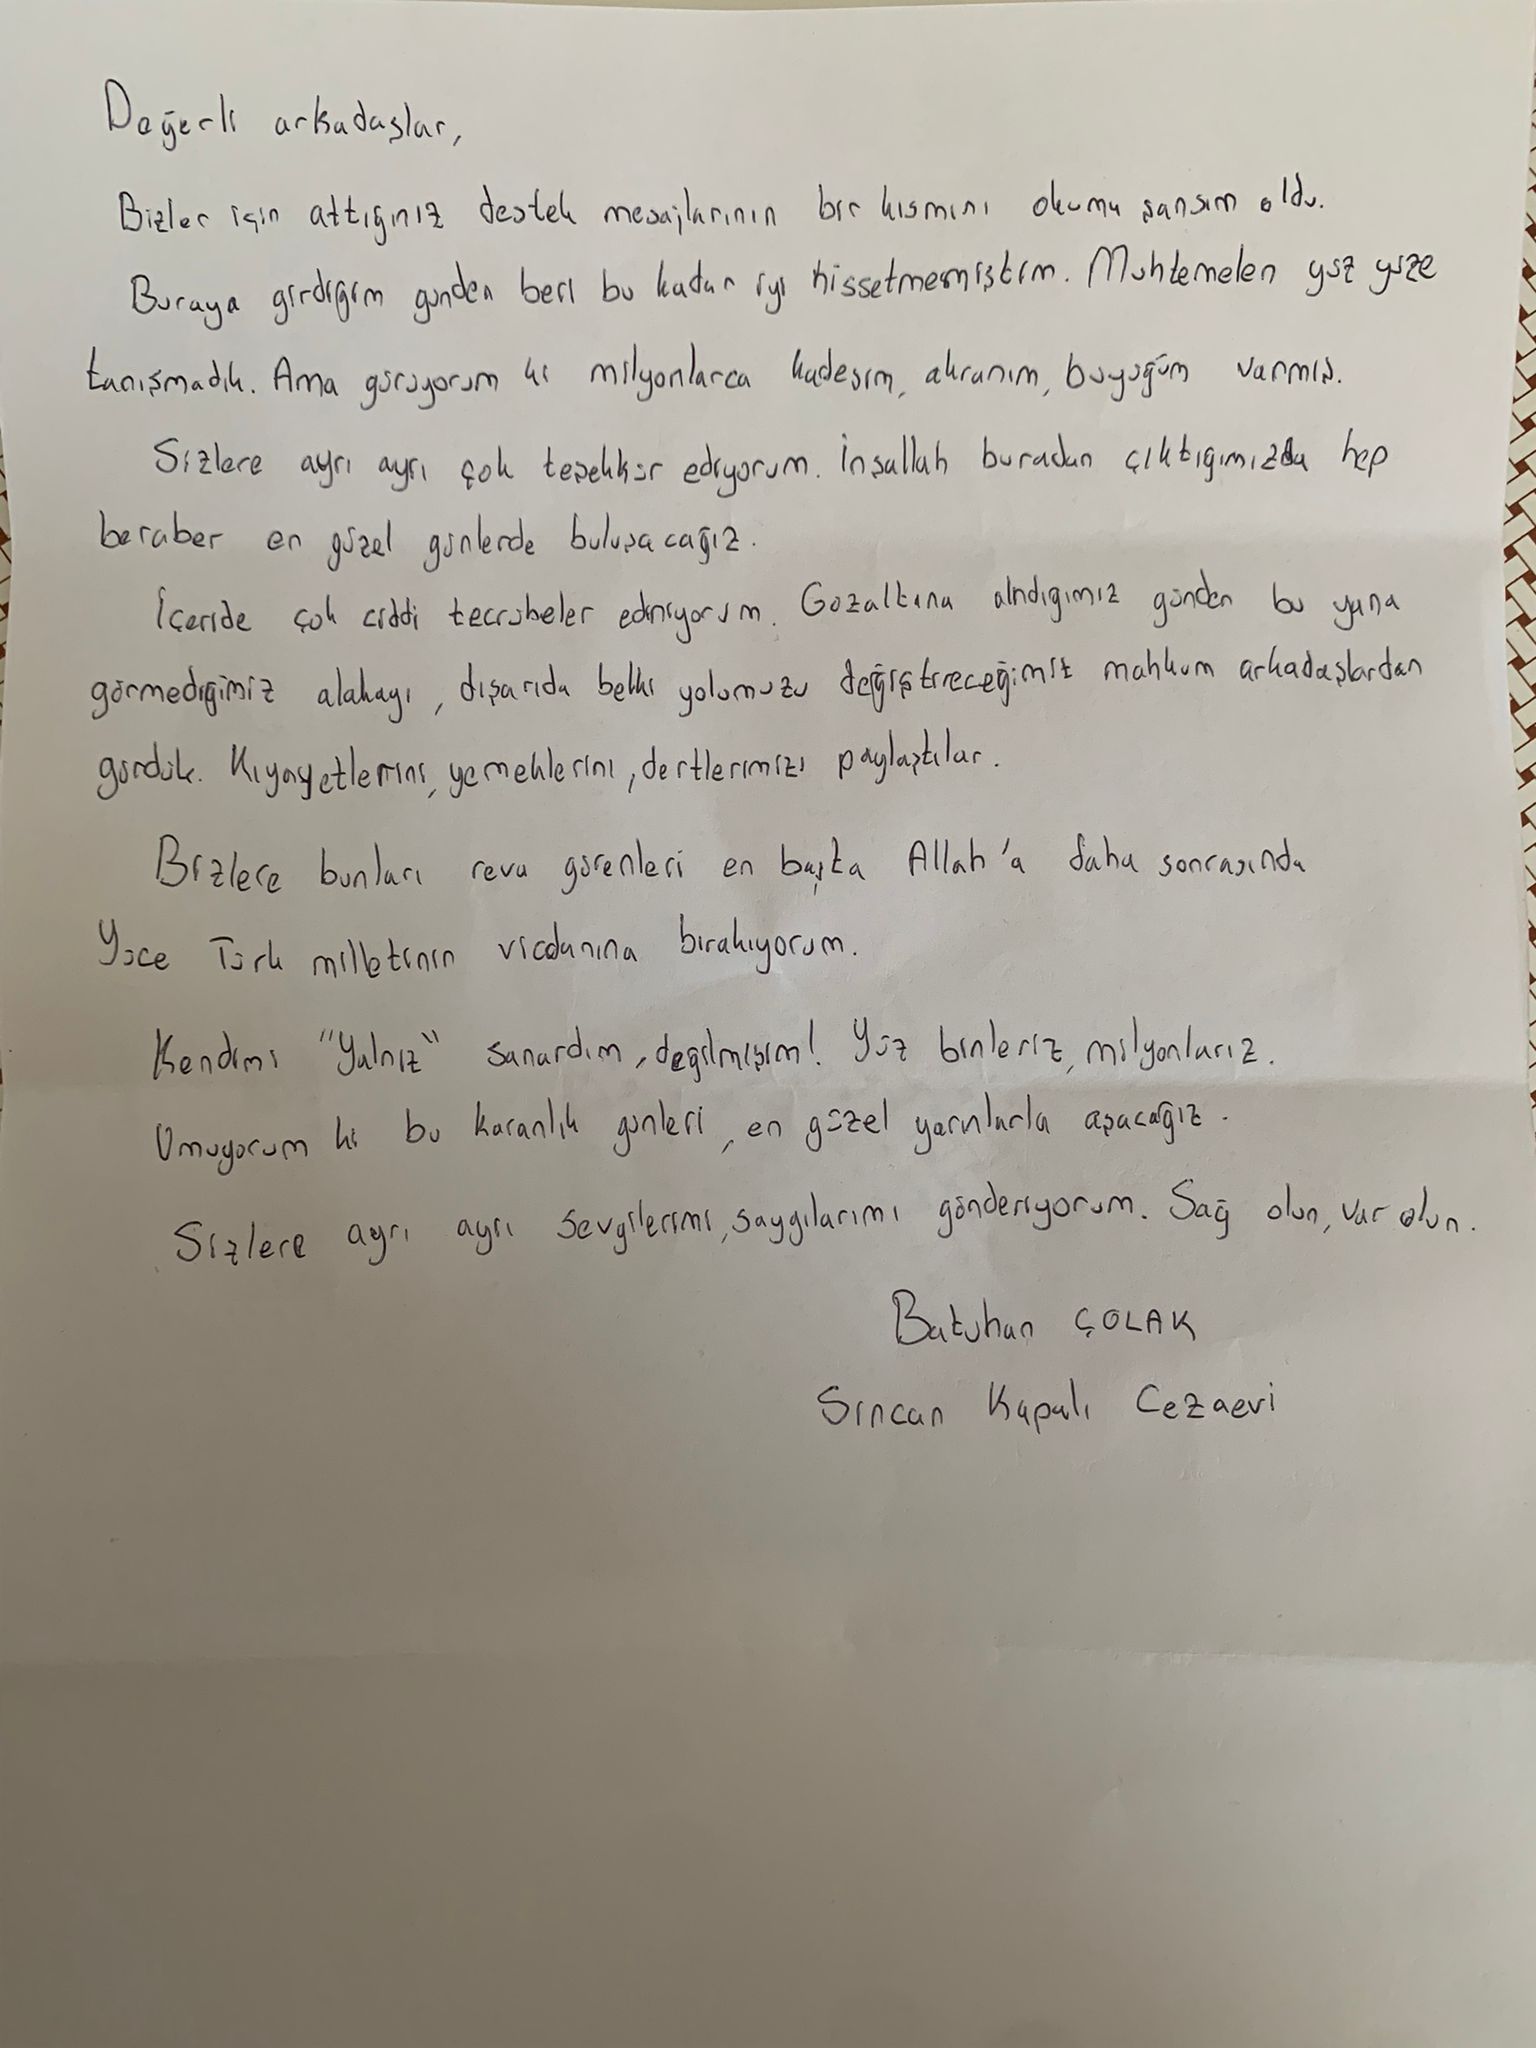 Değerli arkadaşlar,
Bizler için attığınız destek mesajlarının bir kısmını okuma şansım oldu.
Buraya girdiğim günden beri bu kadar iyi hissetmemiştim. Muhtemelen yüz yüze
tanışmadık. Ama görüyorum ki milyonlarca kadeşim, akranım, büyüğüm varmış.
Sizlere ayrı ayrı çok teşekkür ediyorum. İnşallah buradan çıktığımızda hep
beraber en güzel günlerde buluşacağız.
İçeride çok ciddi tecrübeler ediniyorum. Gözaltına alındığımız günden bu yana
görmediğimiz alakayı, dışarıda belki yolumuzu değiştireceğimiz mahkum arkadaşlardan
gördük. Kıyafetlerini, yemeklerini, dertlerimizi paylaştılar.
Bizlere bunları reva görenleri en başta Allah'a daha sonrasında
Yüce Türk milletinin vicdanına bırakıyorum.
Kendimi "Yalnız" sanardım, değilmişim! Yüz binleriz, milyonlarız.
Umuyorum ki bu karanlık günleri, en güzel yarınlarla aşacağız.
Sizlere ayrı ayrı sevgilerimi, saygılarımı gönderiyorum. Sağ olun, var olun.
Batuhan ÇOLAK
Sincan Kapalı Cezaevi